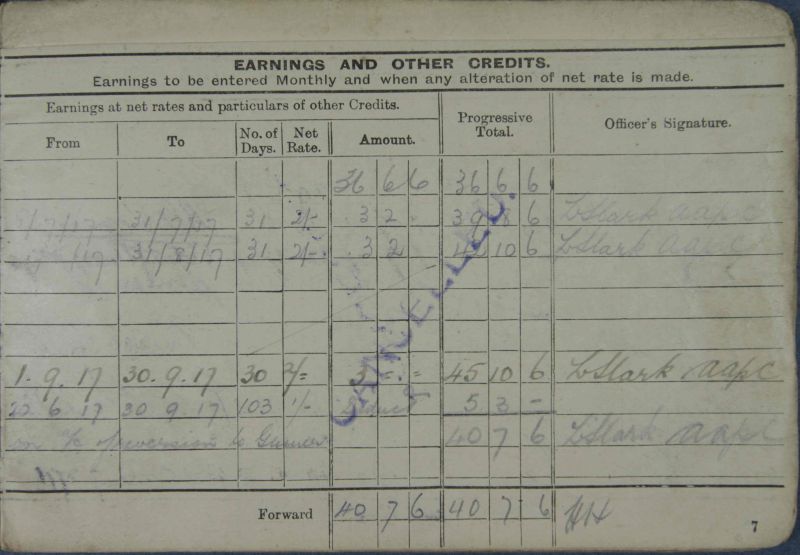 EARNINGS AND OTHER CREDITS.
Earnings to be entered Monthly and when any alteration of net rate is made.
Earnings at net rates and particulars of other Credits.
Progressive Total.
Officer's Signature.
From To No. of Days. Net Rate. Amount.
36 6 6 36 6 6
1/7/17 31/7/17 31 2/- 3 2 . 39 8 6 L Stark aapc
/17 31/8/17 31 2/- 3 2 42 10 6 L Stark aapc
CANCELLED.
1. 9. 17 30. 9. 17 30 2/= 3 = . = 45 10 6 L Stark aapc
6 17 30 9 17 103 1/- 5 3 –
on a/c of reversion to Gunner 40 7 6 L Stark aapc
Forward 40 7 6 40 7 6 HH
7